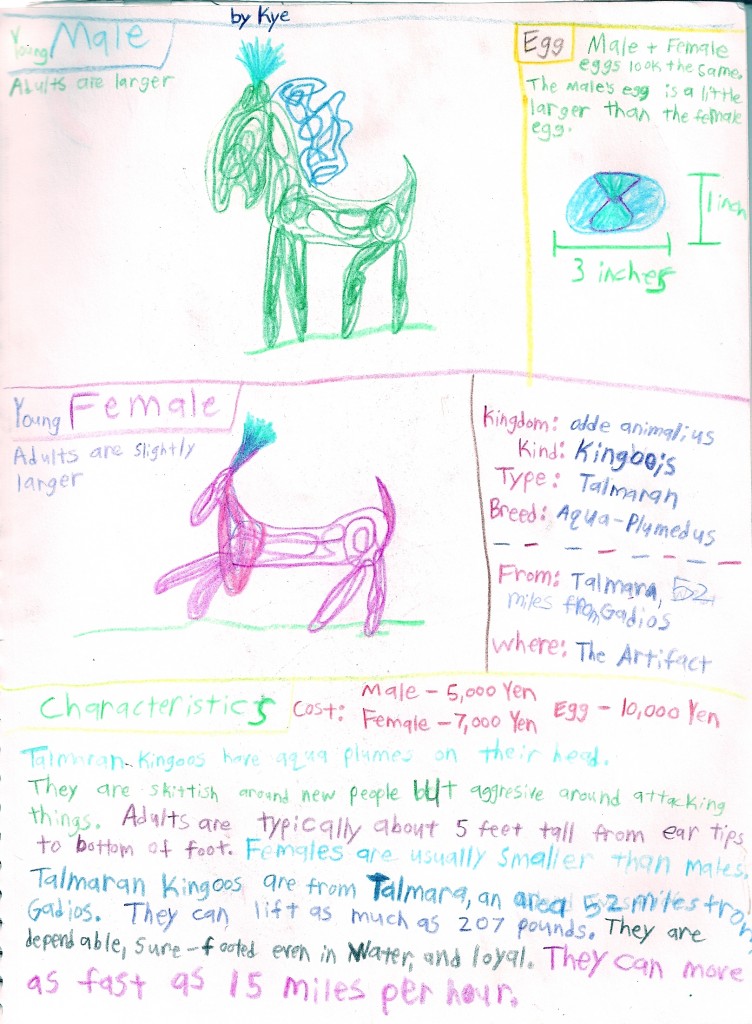 by Kye
Young Male
Adults are larger
Egg
Male + Female
eggs look the same.
The male's egg is a little
larger than the female
egg.
1 inch
3 inches
Young Female
Adults are slightly
larger
Kingdom: odde animalius
Kind: Kingoois
Type: Talmaran
Breed: Aqua-Plumedus
From: Talmara, 52
miles from Gadios
Where: The Artifact
Characteristics
Cost: Male - 5,000 Yen
Female - 7,000 Yen
Egg - 10,000 Yen
Talmaran Kingoos have aqua plumes on their head.
They are skittish around new people but aggresive around attacking
things. Adults are typically about 5 feet tall from ear tips
to bottom of foot. Females are usually smaller than males.
Talmaran Kingoos are from Talmara, an area 52 miles from
Gadios. They can lift as much as 207 pounds. They are
dependable, sure-footed even in Water, and loyal. They can move
as fast as 15 miles per hour.